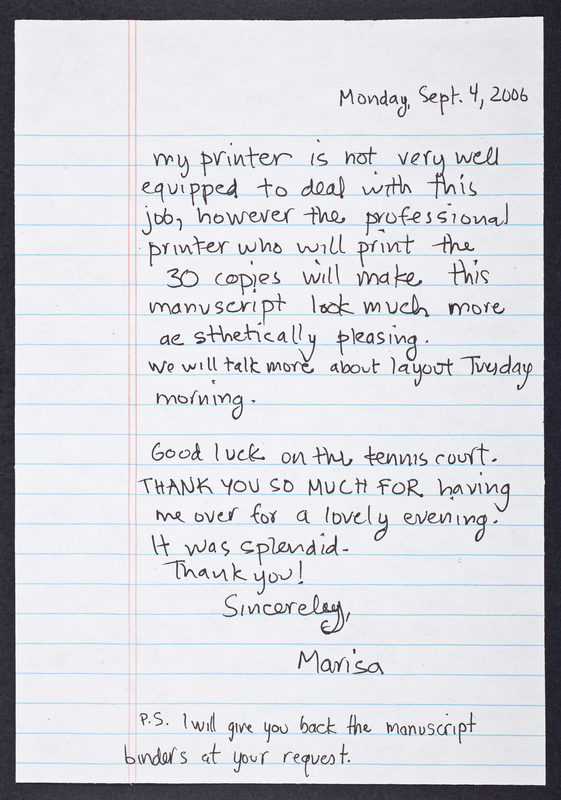 Monday, Sept. 4, 2006
my printer is not very well
equipped to deal with this
job, however the professional
printer who will print the
30 copies will make this
manuscript look much more
aesthetically pleasing.
We will talk more about layout Tuesday
morning.
Good luck on the tennis court.
THANK YOU SO MUCH FOR having
me over for a lovely evening.
It was splendid.
Thank you!
Sincereley,
Marisa
P.S. I will give you back the manuscript
binders at your request.